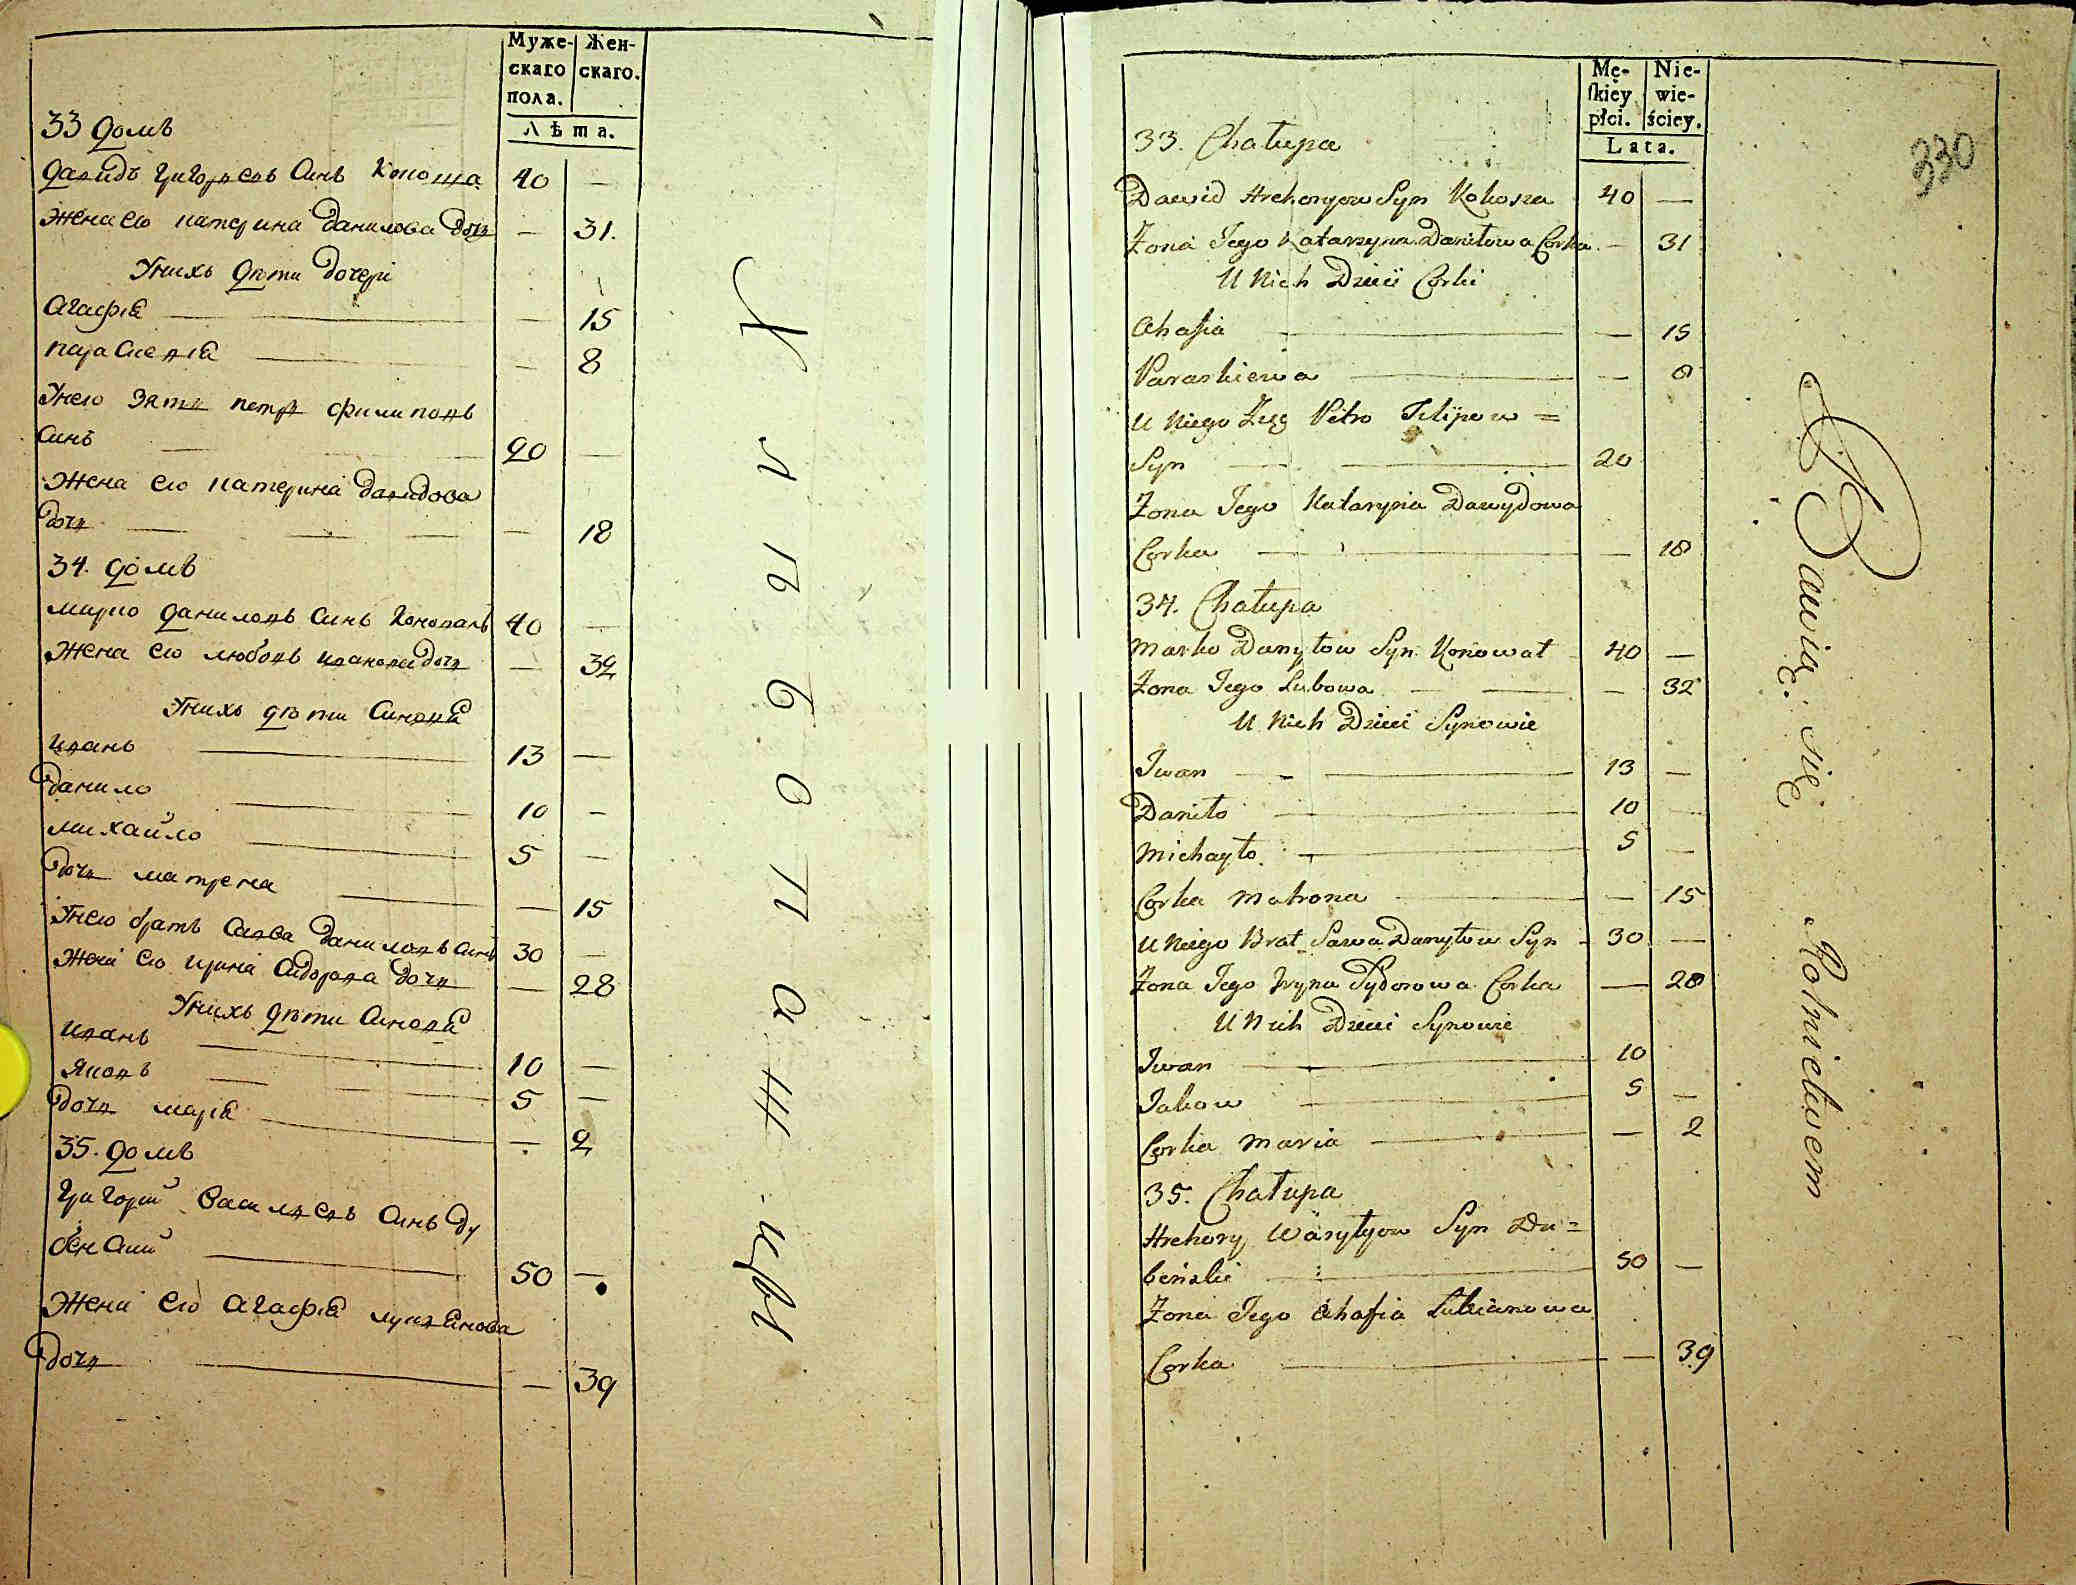 Муже- Жен-
скаго скаго.
пола.
Лѣта.
33 домъ
Давидъ Григорьевъ Синъ Кокоша 40 —
Жена его катерина Данилова дочь — 31.
Унихъ дѣти дочери
Агафія — 15
параскевія — 8
Унего зять петръ филиповъ
Синъ 20 —
Жена его катерина давидова
дочь — 18
34. домъ
марко даниловъ Синъ коновалъ 40 —
Жена его любовь иванова дочь — 32
Унихъ дѣти Синовя
иванъ 13 —
данило 10 —
михайло 5 —
дочь матрена — 15
Унего братъ Савва Даниловъ Синъ 30 —
Жена его ирина Сидорова дочь — 28
Унихъ дѣти Синовя
иванъ 10 —
яковъ 5 —
дочь марія — 2
35. домъ
Григорій Васильевъ Синъ Ду
бенский 50 —
Жена его агафія лукянова
дочь — 39
Хлѣбопашцы
Mę- Nie-
skiey wie-
płci. ściey.
Lata.
330
33. Chałupa
Dawid Hrehoryow Syn Kokosza 40 —
Żona Jego Katarzyna Daniłowa Corka — 31
U Nich Dzieci Corki
Ahafia — 15
Paraskiewa — 8
U Niego Zięć Petro Filipow =
Syn 20
Żona Jego Kataryna Dawydowa
Corka — 18
34. Chałupa
Marko Danyłow Syn Konował 40 —
Żona Jego Lubowa — 32
U Nich Dzieci Synowie
Iwan 13 —
Daniło 10 —
Michayło 5 —
Corka Matrona — 15
U Niego Brat Sawa Danyłow Syn 30 —
Żona Jego Iryna Sydorowa Corka — 28
U Nich Dzieci Synowie
Iwan 10
Jakow 5 —
Corka Maria — 2
35. Chałupa
Hrehory Wasylyow Syn Du=
beński 50 —
Żona Jego Ahafia Lukianowa
Corka — 39
Bawią się Rolnictwem